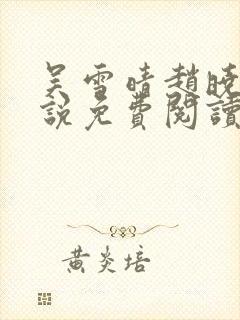 吴雪晴趙曉
說免費閱讀
黄炎培